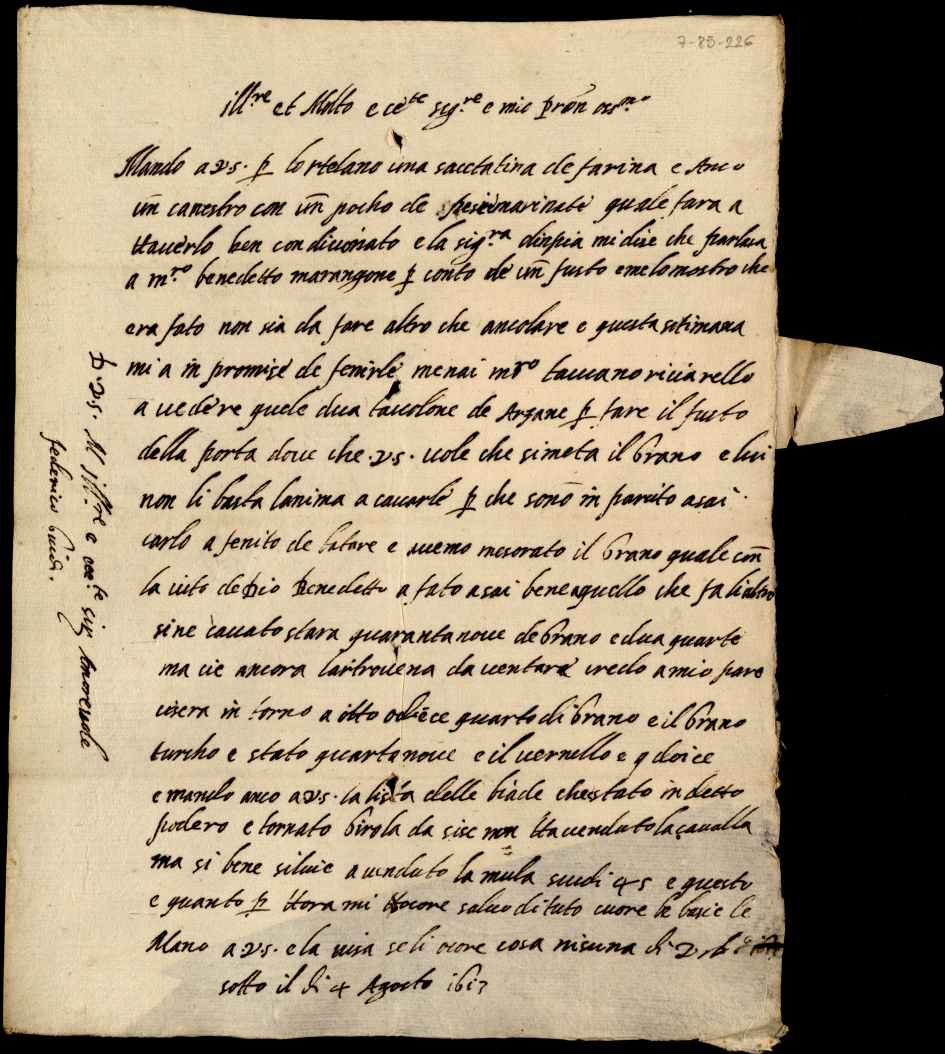 7-85-226
ill.re et Molto ecc.te sig.re e mio pron oss.mo
Mando a vs. p lortelano una sacctatina de farina e Anco
un canestro con un pocho de pesi marinati quale fara a
Haverlo ben condicionato e la sig.ra che parlava
a m.ro benedetto marangone p conto de un fusto e melo mostro che
era fato non sia da fare altro che ancolare e questa setimana
mi a in promise de fenirle menai m.ro riciarello
a vedere quele dua tavolone de Argane p fare il fusto
della porta dove che .vs. vole che simeta il Grano e lui
non li basta lanima a cavarle p che sono in asai
carlo a fenito de batare e avemo mesorato il Grano quale con
la iuto de Dio Benedetto a fato asai bene aquello che fa li altre
si ne cavato stara quaranta nove de Grano e dua quarte
ma cie ancora da ventare credo a mio pare
cisera in torno a otto o diece quarto di Grano e il Grano
turcho e stato quarta nove e il vernello e q doice
e mando anco a vs. la lista delle biade che stato in detto
podero e tornato Girola da sise non Ha venduto la cavalla
ma si bene silvie a venduto la mula scudi 45 e questo
e quanto p Hora mi Hocore salvo di tuto cuore le basie le
Mano a vs. e la visa se li ocore cosa nisuna di
sotto il di 4 Agosto 1617
D vs. M ill.re e ecc.te sig Amorevole
federico Guidi.